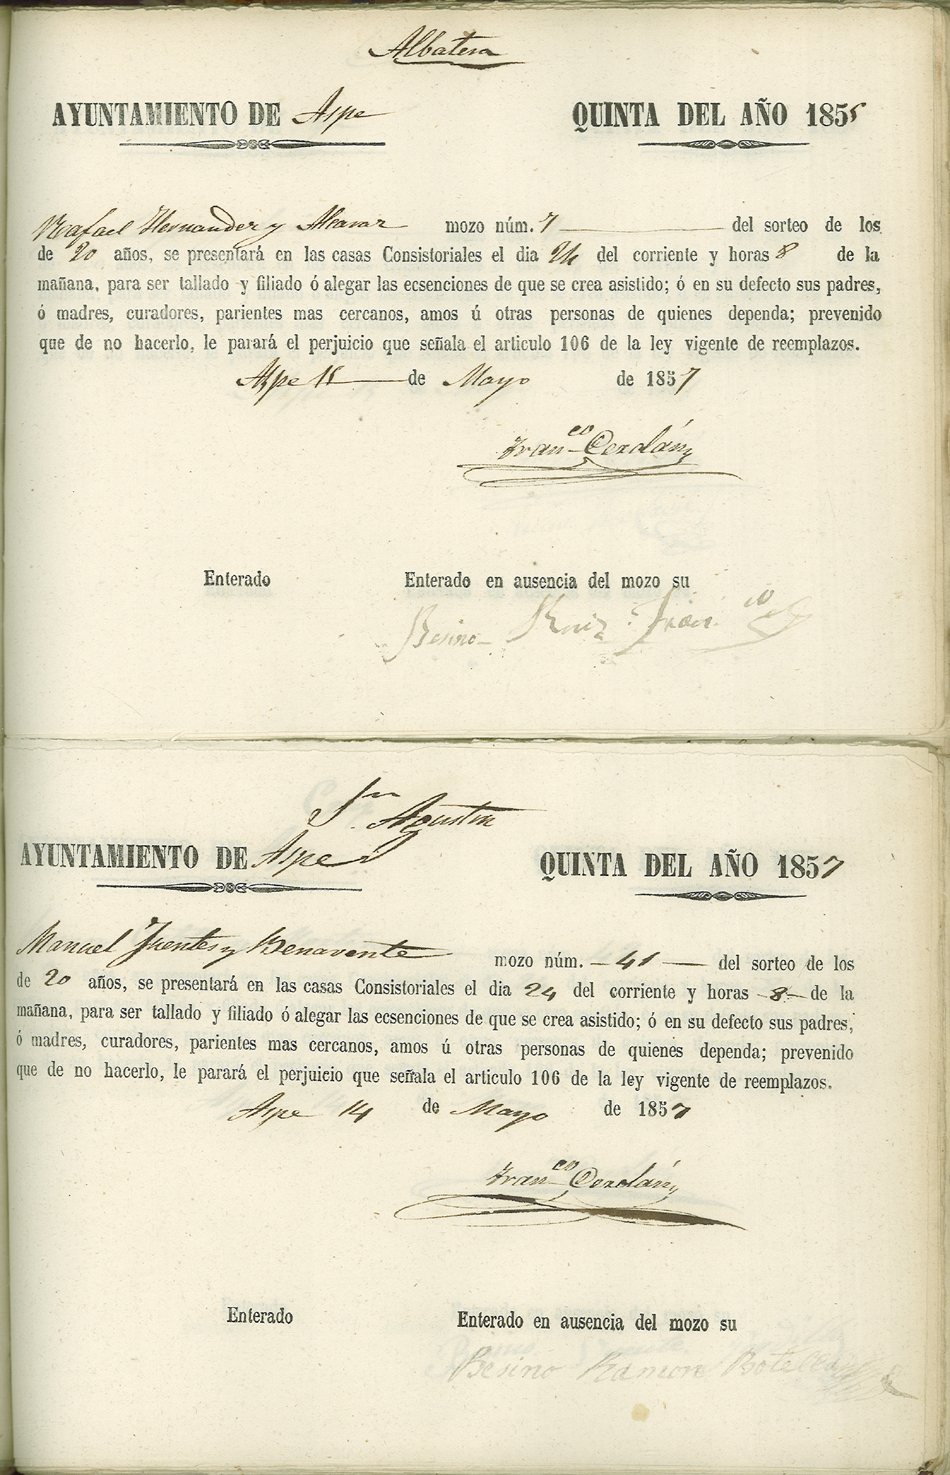 Albatera
AYUNTAMIENTO DE Aspe QUINTA DEL AÑO 1855
Rafael Hernandez y Alcaraz mozo núm. 7 del sorteo de los
de 20 años, se presentará en las casas Consistoriales el dia 24 del corriente y horas 8 de la
mañana, para ser tallado y filiado ó alegar las ecsenciones de que se crea asistido; ó en su defecto sus padres,
ó madres, curadores, parientes mas cercanos, amos ú otras personas de quienes dependa; prevenido
que de no hacerlo, le parará el perjuicio que señala el articulo 106 de la ley vigente de reemplazos.
Aspe de Mayo de 1857
Fran.co Cerdán
Enterado Enterado en ausencia del mozo su
Besino Ruiz Fran.co
Sn. Agustin
AYUNTAMIENTO DE Aspe QUINTA DEL AÑO 1857
Manuel Fuentes y Benavente mozo núm. 41 del sorteo de los
de 20 años, se presentará en las casas Consistoriales el dia 24 del corriente y horas 8 de la
mañana, para ser tallado y filiado ó alegar las ecsenciones de que se crea asistido; ó en su defecto sus padres,
ó madres, curadores, parientes mas cercanos, amos ú otras personas de quienes dependa; prevenido
que de no hacerlo, le parará el perjuicio que señala el articulo 106 de la ley vigente de reemplazos.
Aspe 14 de Mayo de 1857
Fran.co Cerdán
Enterado Enterado en ausencia del mozo su
Besino Ramon Botella